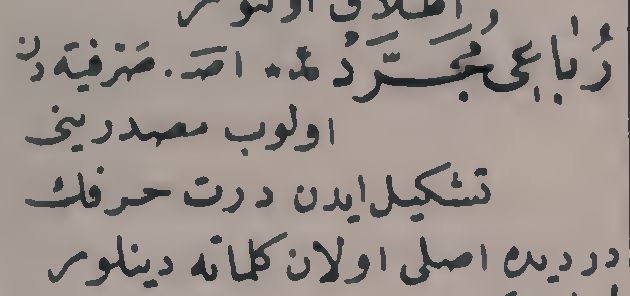 اطلاق اولنور
رُبَاعِی مُجَرَّدْ امر. صرفیه دن
اولوب مصدرینی
تشكیل ایدن درت حرفك
دردیده اصلی اولان كلماته دینلور